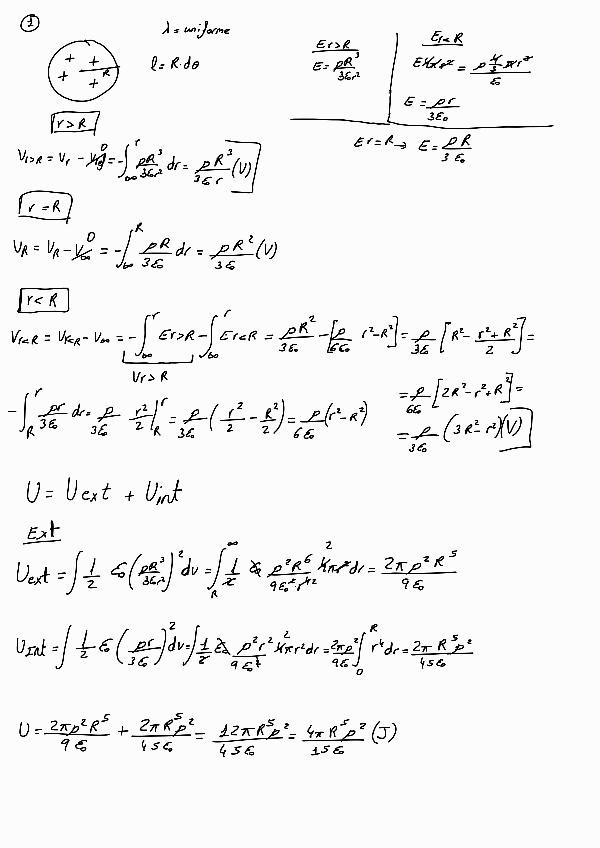 1
λ = uniforme
l = R·dθ
+ + + + R
Er>R
E = ρR³/3ε₀r²
Er<R
E4πr² = ρ 4/3 πr³/ε₀
E = ρr/3ε₀
Er=R → E = ρR/3ε₀
r > R
Vr>R = Vr - V∞ = -∫∞^r ρR³/3εr² dr = ρR³/3ε r (V)
r = R
VR = VR - V∞ = -∫∞^R ρR/3ε dr = ρR²/3ε₀ (V)
r < R
Vr<R = Vr<R - V∞ = -∫∞^r Er>R - ∫∞^r Er<R = ρR²/3ε₀ - [ρ/6ε₀ r²-R²] = ρ/3ε₀ [R² - r²+R²/2] =
Vr>R
-∫R^r ρr/3ε₀ dr = ρ/3ε₀ r²/2 |R^r = ρ/3ε₀ (r²/2 - R²/2) = ρ/6ε₀ (r²-R²)
= ρ/6ε₀ [2R²-r²+R²] =
= ρ/3ε₀ (3R²-r²)(V)
U = Uext + Uint
Ext
Uext = ∫ 1/2 ε₀ (ρR³/3εr²)² dv = ∫R^∞ 1/2 ε₀ ρ²R⁶/9ε₀²r⁴ 4πr² dr = 2πρ²R⁵/9ε₀
UInt = ∫ 1/2 ε₀ (ρr/3ε₀)² dv = ∫ 1/2 ε₀ ρ²r²/9ε₀² 4πr² dr = 2πρ²/9ε₀ ∫0^R r⁴ dr = 2πR⁵ρ²/45ε₀
U = 2πρ²R⁵/9ε₀ + 2πR⁵ρ²/45ε₀ = 12πR⁵ρ²/45ε₀ = 4πR⁵ρ²/15ε₀ (J)